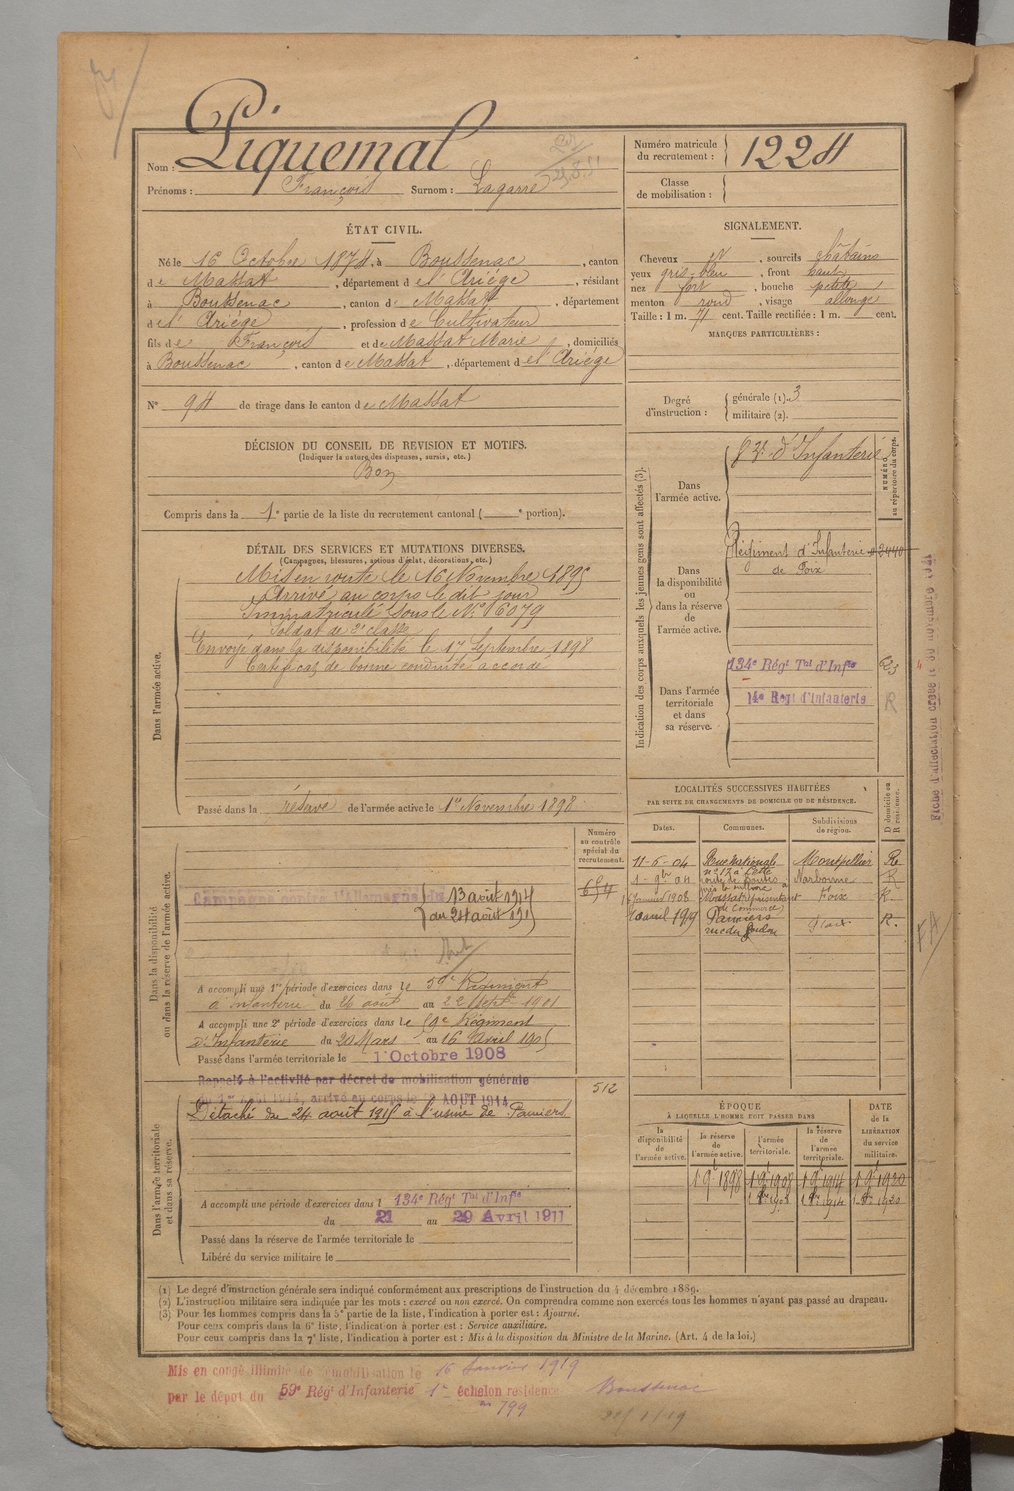 Nom : Piquemal
Prénoms : François Surnom : Lagarre
Numéro matricule du recrutement : 1224
Classe de mobilisation :
ÉTAT CIVIL.
Né le 16 Octobre 1874, à Boussenac, canton
de Massat, département de l'Ariège, résidant
à Boussenac, canton de Massat, département
de l'Ariège, profession de Cultivateur
fils de François et de Massat Marie, domiciliés
à Boussenac, canton de Massat, département de l'Ariège
N° 94 de tirage dans le canton de Massat
SIGNALEMENT.
Cheveux et, sourcils châtains
yeux gris-bleu, front haut
nez fort, bouche petite,
menton rond, visage allongé
Taille : 1 m. 71 cent. Taille rectifiée : 1 m. cent.
MARQUES PARTICULIÈRES :
Degré d'instruction : générale (1). 3
militaire (2).
DÉCISION DU CONSEIL DE REVISION ET MOTIFS.
(Indiquer la nature des dispenses, sursis, etc.)
Bon
Compris dans la 1e partie de la liste du recrutement cantonal ( e portion).
DÉTAIL DES SERVICES ET MUTATIONS DIVERSES.
(Campagnes, blessures, actions d'éclat, décorations, etc.)
Dans l'armée active.
Mis en route le 16 Novembre 1895
Arrivé au corps le dit jour
Immatriculé sous le N° 16079
Soldat de 2e classe
Envoyé dans la disponibilité le 17 Septembre 1898
Certificat de bonne conduite accordé
Passé dans la réserve de l'armée active le 1er Novembre 1898
Indication des corps auxquels les jeunes gens sont affectés (3).
NUMÉRO au répertoire du corps.
Dans l'armée active.
d'Infanterie
Dans la disponibilité ou dans la réserve de l'armée active.
Régiment d'Infanterie 2440
de Foix
Dans l'armée territoriale et dans sa réserve.
134e Régt Tal d'Infie
14e Regt d'Infanterie R
Fiche d'affectation créée le 30 novembre
LOCALITÉS SUCCESSIVES HABITÉES
PAR SUITE DE CHANGEMENTS DE DOMICILE OU DE RÉSIDENCE.
Dates. Communes. Subdivisions de région. D domicile ou R résidence.
11-6-04 Rue Nationale Montpellier Re
Narbonne R
janvier 1908 Massat représentant de Commerce Foix R.
10 avril 1919 Pamiers Foix R.
FA
Dans la disponibilité ou dans la réserve de l'armée active.
Numéro au contrôle spécial du recrutement.
654
Campagne contre l'Allemagne du 13 août 1914
au 24 août 1915
A accompli une 1re période d'exercices dans le 59e Régiment
d'Infanterie du 26 août au 22 Septbre 1901
A accompli une 2e période d'exercices dans le 59e Régiment
d'Infanterie du 20 Mars au 16 Avril 1905
Passé dans l'armée territoriale le 1 Octobre 1908
Dans l'armée territoriale et dans sa réserve.
Rappelé à l'activité par décret de mobilisation générale
du 1er août 1914, arrivé au corps le AOUT 1914
512
Détaché du 24 août 1915 à l'usine de Pamiers
A accompli une période d'exercices dans l 134e Régt Tal d'Infie
du 21 au 29 Avril 1911
Passé dans la réserve de l'armée territoriale le
Libéré du service militaire le
ÉPOQUE
À LAQUELLE L'HOMME DOIT PASSER DANS
DATE de la LIBÉRATION du service militaire.
la disponibilité de l'armée active. la réserve de l'armée active. l'armée territoriale. la réserve de l'armée territoriale.
1 9bre 1898 1 9bre 1908 1 9bre 1914 1 9bre 1920
(1) Le degré d'instruction générale sera indiqué conformément aux prescriptions de l'instruction du 4 décembre 1889.
(2) L'instruction militaire sera indiquée par les mots : exercé ou non exercé. On comprendra comme non exercés tous les hommes n'ayant pas passé au drapeau.
(3) Pour les hommes compris dans la 5e partie de la liste, l'indication à porter est : Ajourné.
Pour ceux compris dans la 6e liste, l'indication à porter est : Service auxiliaire.
Pour ceux compris dans la 7e liste, l'indication à porter est : Mis à la disposition du Ministre de la Marine. (Art. 4 de la loi.)
Mis en congé illimité de démobilisation le 16 Janvier 1919
par le dépôt du 59e Régt d'Infanterie 1er échelon residence Boussenac
n° 799